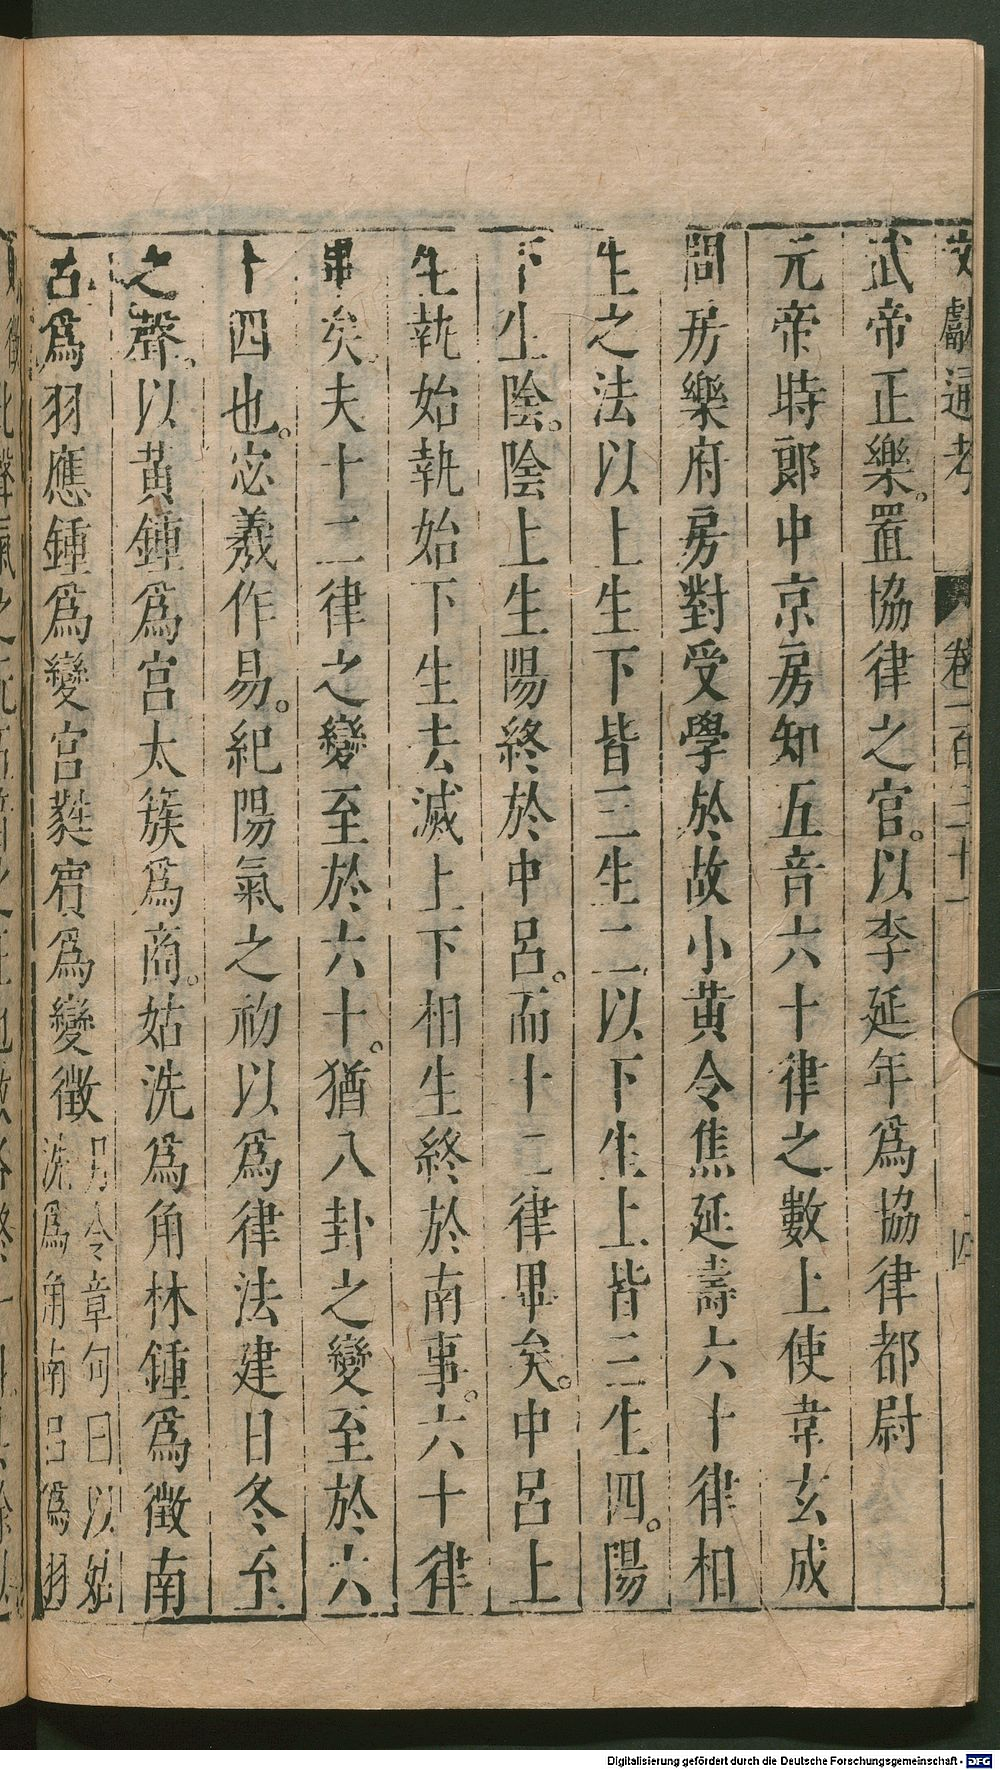 文獻通考 卷一百三十一 四
武帝正樂。置協律之官。以李延年爲協律都尉
元帝時郎中京房知五音六十律之數上使韋玄成
問房樂府房對受學於故小黃令焦延壽六十律相
生之法以上生下皆三生二以下生上皆三生四。陽
下生陰。陰上生陽終於中呂。而十二律畢矣。中呂上
生執始執始下生去滅上下相生終於南事。六十律
畢矣。夫十二律之變至於六十。猶八卦之變至於六
十四也。宓羲作易。紀陽氣之初以爲律法建日冬至
之聲。以黃鍾爲宮太簇爲商。姑洗爲角林鍾爲徵南
古爲羽應鍾爲變宮蕤賓爲變徵
月令章句曰以姑
洗爲角南呂爲羽
Digitalisierung gefördert durch die Deutsche Forschungsgemeinschaft - DFG